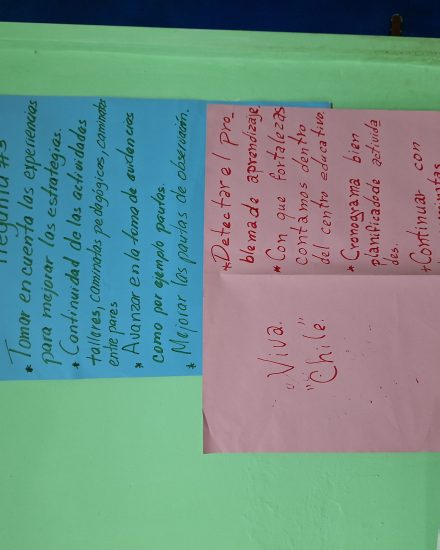 Pregunta #3
* Tomar en cuenta las experiencias
para mejorar las estrategias.
* Continuidad de las actividades
talleres, caminatas pedagógicas, caminatas
entre pares
* Avanzar en la toma de audiencias
como por ejemplo pautas.
* Mejorar las pautas de observación.
* Detectar el pro_
blema de aprendizaje.
* Con que fortalezas
contamos dentro
del centro educativo.
* Cronograma bien
planificado de activida
des.
+ Continuar con
"Viva.
"Chile".